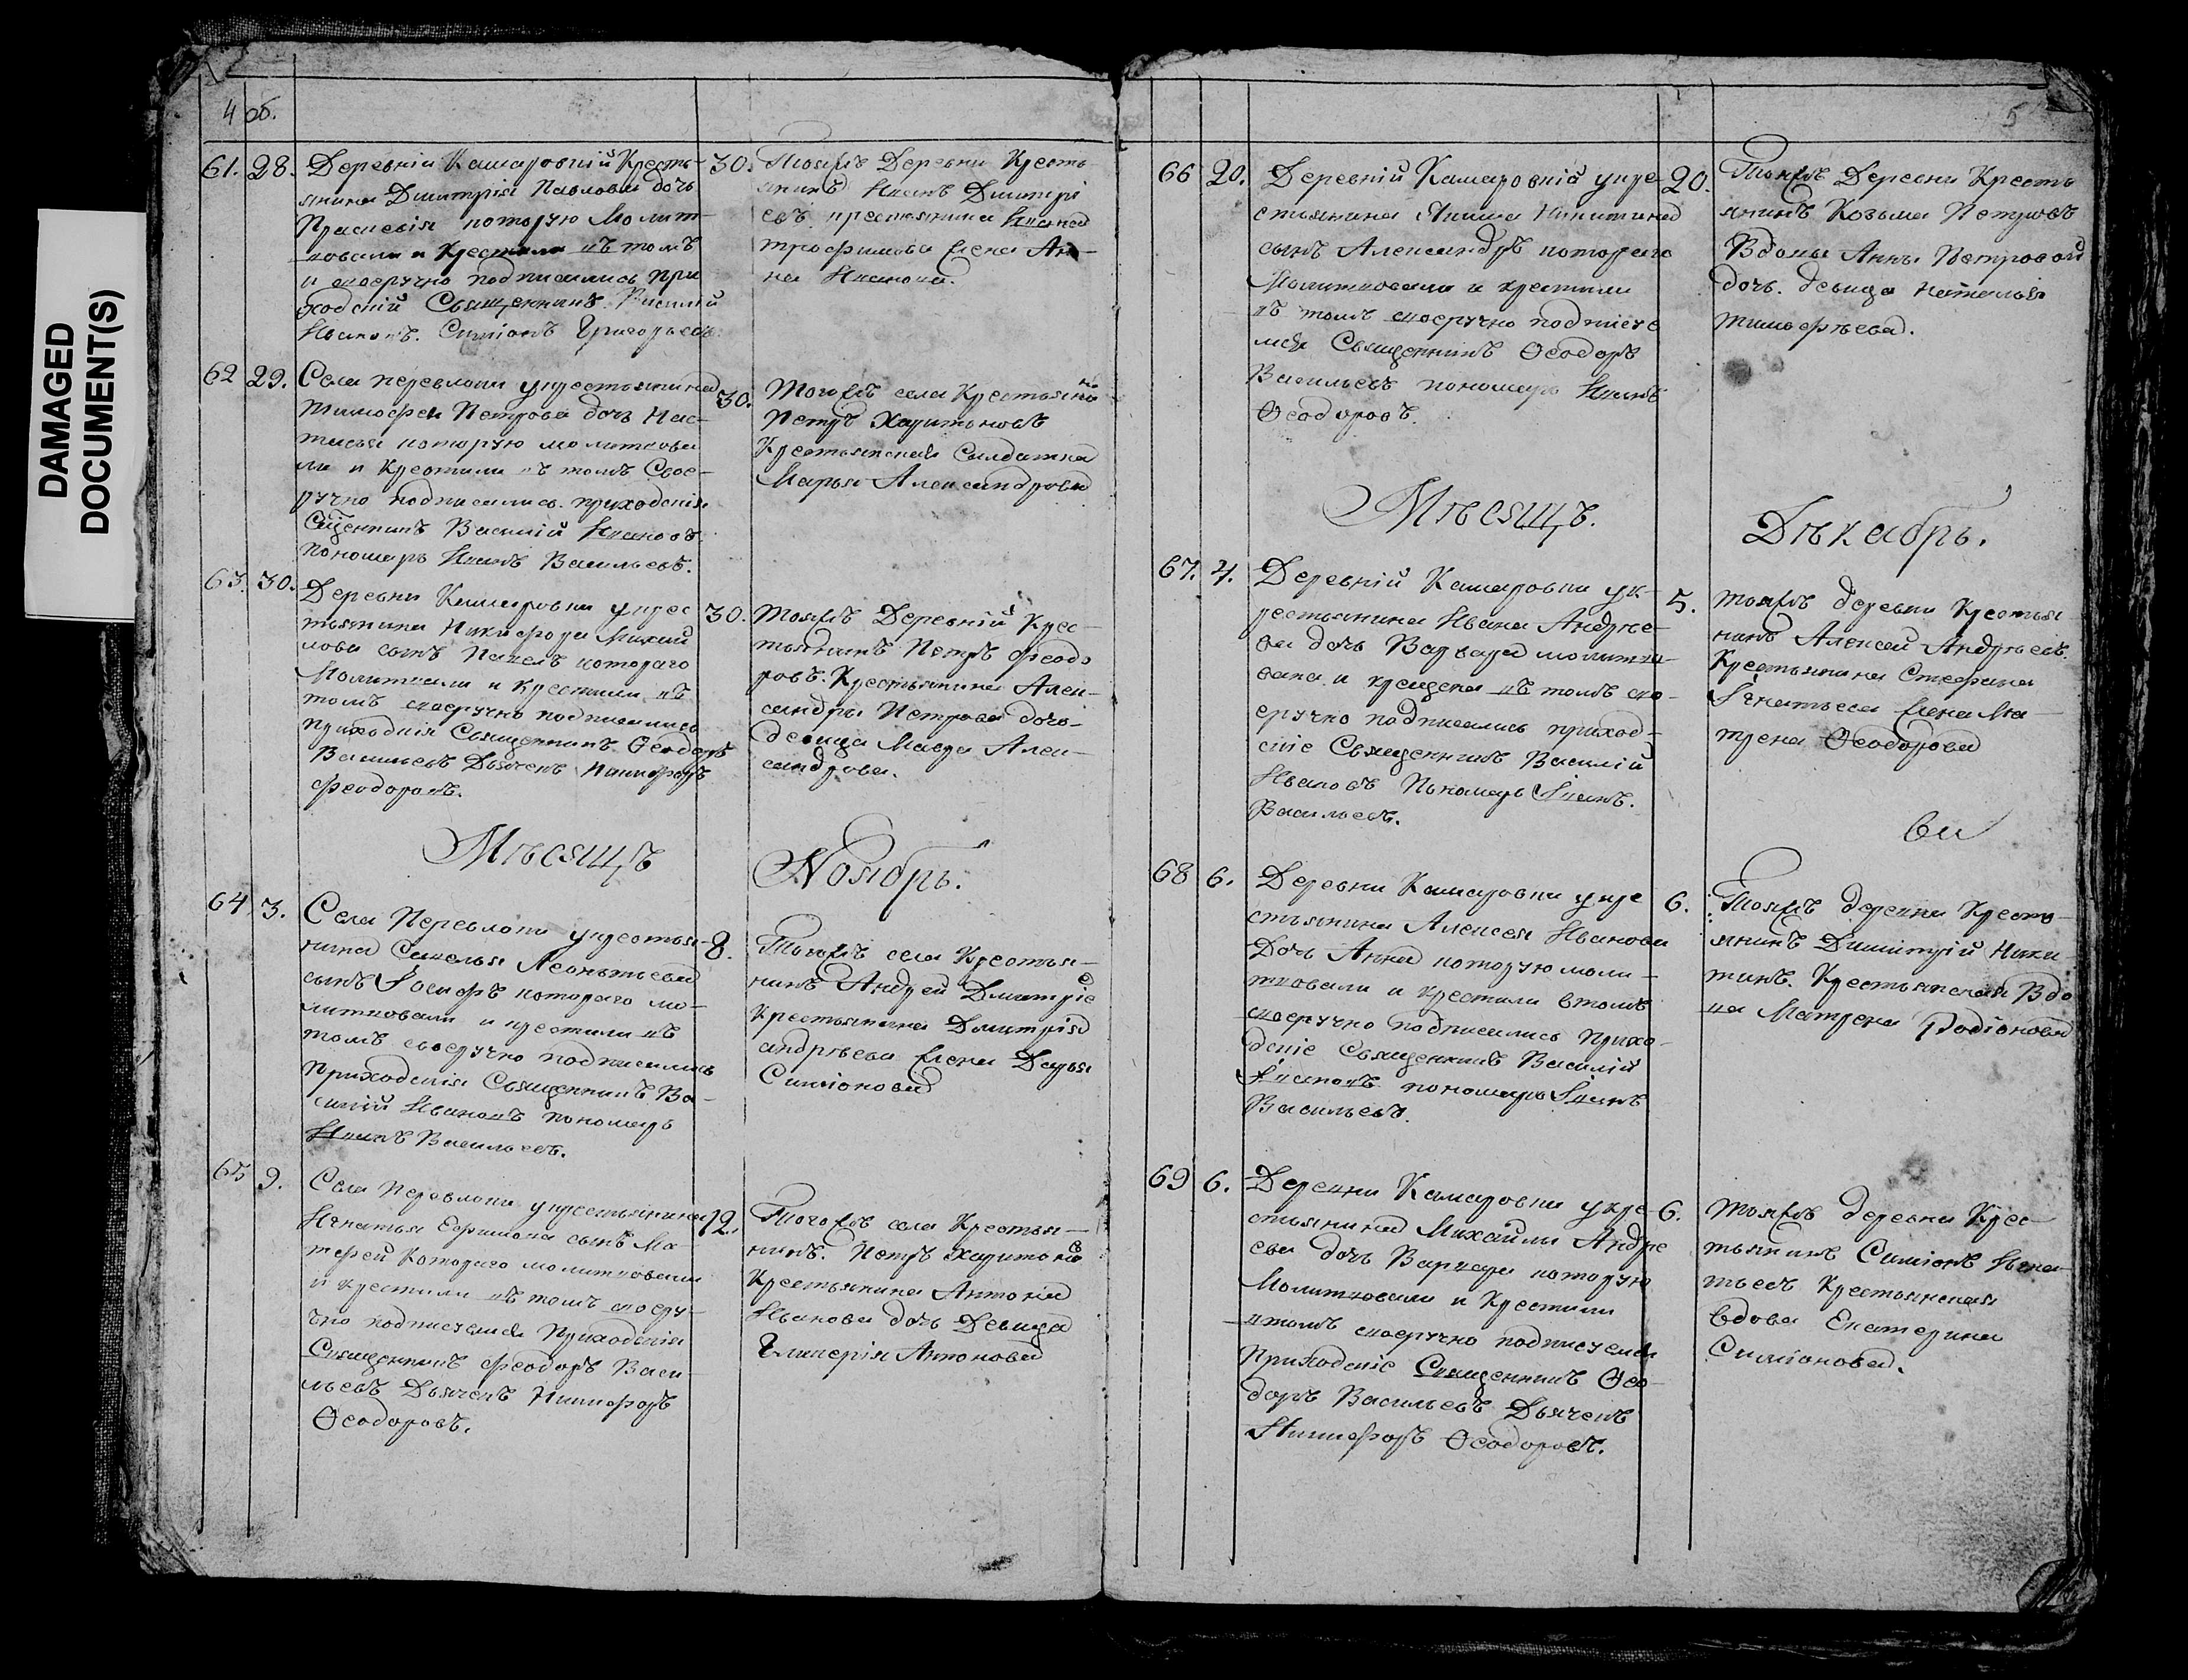 DAMAGED
DOCUMENT(S)
4 об.
61. 28. Деревни Камаровкій Кресть-
янина Дмитрія Павлова дочь
Праскевія которую Молит-
вовали и Крестили въ томъ
и своеручно подписались при
ходскій Священникъ Василій
Ивановъ. Симіонъ Григорьевъ.
30. Тояжъ Деревни Кресть-
янинъ Иванъ Дмитрі
евъ крестьянина Ивана
трофимова Елена Ан-
на Иванова.
62 29. Села перевлоки укрестьянина
Тимофея Петрова дочь Нас-
тасья которую молитвова
ли и Крестили въ томъ Свое-
ручно подписались приходскія
Сщенникъ Василій Ивановъ
пономарь Иванъ Васильевъ.
30. Тогожъ села Крестьяни
нъ
Петръ Харитоновъ
Крестьянская Салдатка
Марья Александрова
63. 30. Деревни Камаровки укрес
тьянина Никифора Михаи
лова сынъ Павелъ котораго
Молитвали и крестили въ
томъ своеручно подписались
приходскія Священникъ Ѳеодоръ
Васильевъ Дьячекъ Никифоръ
Феодоровъ.
30. Тояжъ Деревній Крес-
тьянинъ Петръ Феодо
ровъ. Крестьянина Алек-
сандры Петрова дочь-
девица Мавра Алек-
сандрова.
Мѣсяцъ Ноябрь.
64 3. Села Перевлоки укрестья-
нина Савелья Леонтьева
сынъ Іосифъ котораго мо-
литвовали и крестили въ
томъ своеручно подписались
Приходскія Священникъ Ва-
силій Ивановъ пономарь
Иванъ Васильевъ.
8. Тогожъ села Крестья-
нинъ Андрей Дмитріе
в
Крестьянина Дмитрія
андрѣева Елена Дарья
Симіонова
65 9. Села Перевлоки укрестьянина
Игнатья Ефимова сынъ Ма
тфей Котораго молитвовали
и крестили въ томъ своеру-
чно подписуемся Приходскія
Священникъ Феодоръ Васи-
льевъ Дьячекъ Никифоръ
Ѳеодоровъ.
12. Тогожъ села Крестья-
нинъ. Петръ Харитоно
в
Крестьянина Антона
Иванова дочь Девица
Гликерія Антонова
5
66 20. Деревній Камаровкій укре-
стьянина Якима Никитина
сынъ Александръ котораго
Молитвовали и крестили
въ томъ своеручно подписуе
мся Священникъ Ѳеодоръ
Васильевъ пономарь Иванъ
Ѳеодоровъ.
20. Тояжъ Деревни Кресть
янинъ Козьма Петровъ
Вдовы Анны Петровой
дочь. девица Наталья
тимофѣева.
Мѣсяцъ. Дѣкабрь.
67. 4. Деревній Камаровки ук-
рестьянина Ивана Андрѣе-
ва дочь Варвара молитво-
вана и крещена въ томъ сво-
еручно подписались приход-
скіе Священникъ Василій
Ивановъ Пономарь Іванъ.
Васильевъ.
5. Тояжъ деревни Крестья
нинъ Алексей Андрѣевъ.
Крестьянина Стефана
Ігнатьева Елена Ма-
трена Ѳеодорова
ва
68 6. Деревни Камаровки укре
стьянина Алексея Иванова
Дочь Анна которую моли-
твовали и крестили втомъ
своеручно подписались Прихо-
дскіе Священникъ Василій
Ивановъ пономарь Іванъ
Васильевъ.
6. Тояжъ деревни Кресть-
янинъ Димитрій Ники
тинъ. Крестьянская Вдо
ва Матрена Родіонова
69 6. Деревни Камаровки укре-
стьянина Михайлы Андре
ева дочь Варвара которую
Молитвовали и Крестили
втомъ своеручно подписуемся
Приходскіе Священникъ Ѳео-
доръ Васильевъ Дьячекъ
Никифоръ Ѳеодоровъ.
6. Тояжъ деревни Крес-
тьянинъ Симіонъ Игна-
тьевъ Крестьянская
вдова Екатерина
Симіонова.